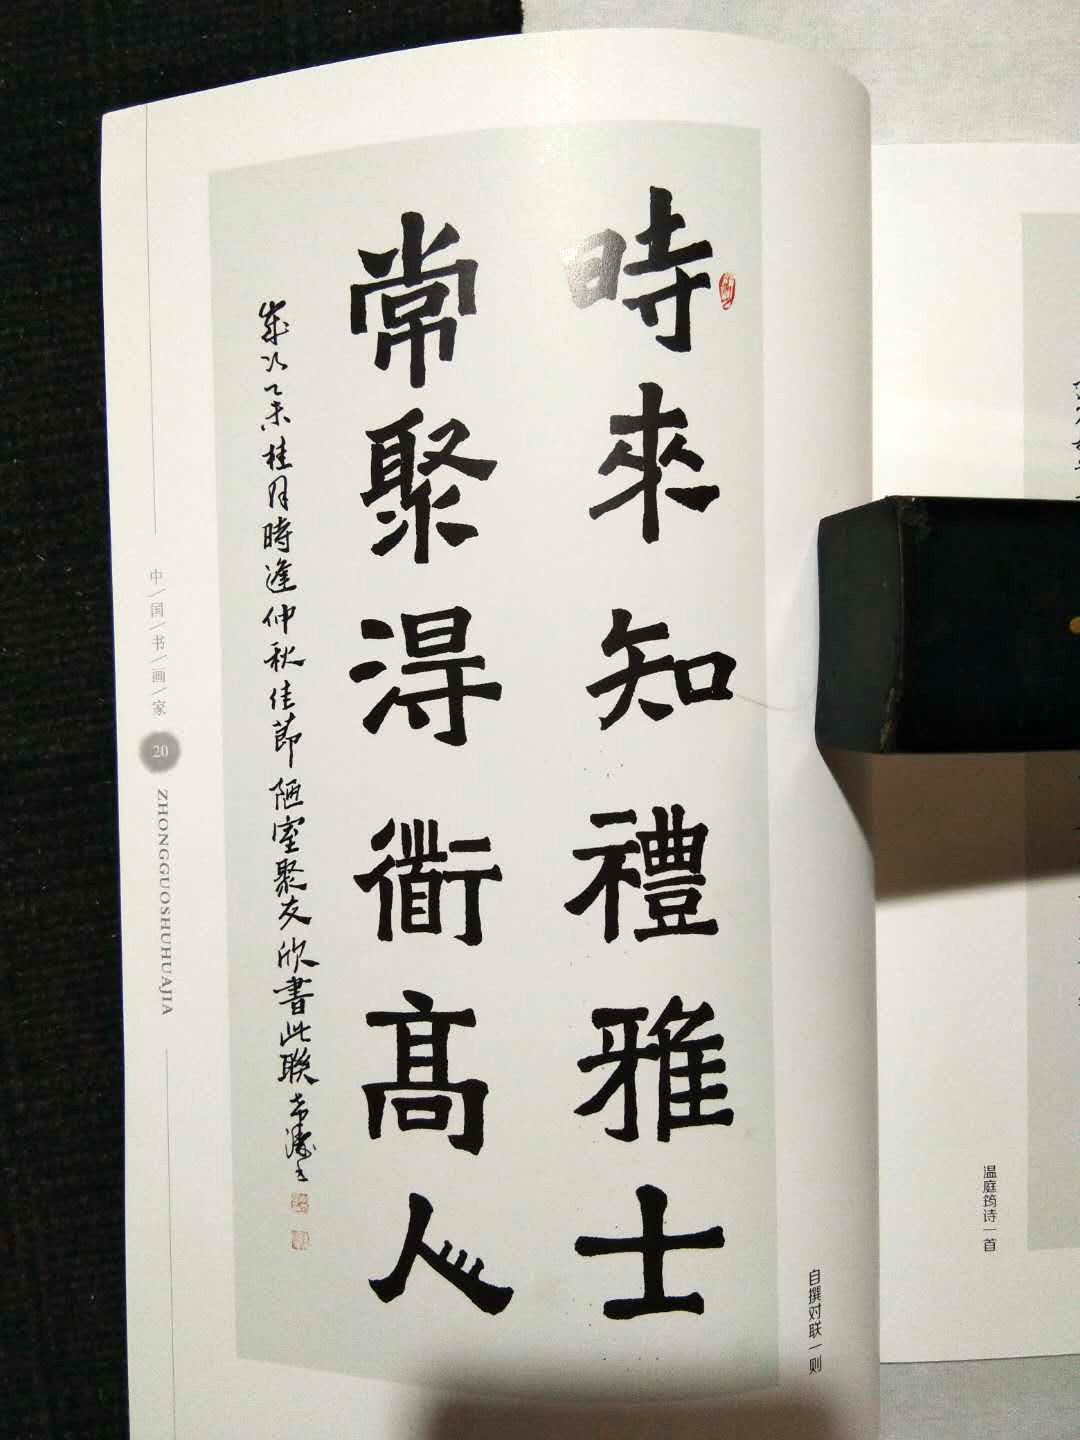 時來知禮雅士
常聚淂衜高人
歲次乙未桂月時逢仲秋佳節陋室聚友欣書此聯
自撰对联一则
中国书画家
20
ZHONGGUOSHUHUAJIA
温庭筠诗一首